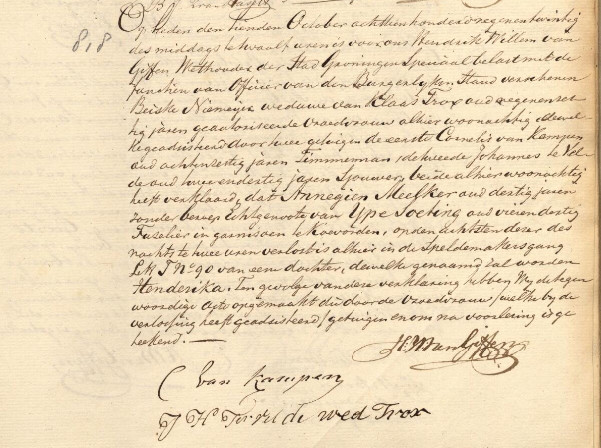 818
Op heden den tienden October achttienhonderd negenentwintig
des middags te twaalf uren is voor ons Hendrik Willem van
Giffen Wethouder der Stad Groningen Speciaal belast met de
functien van Officier van den Burgerlyken Stand verschenen
Beiske Niemeijer weduwe van Klaas Trox oud negenenzes
tig jaren geautoriseerde Vroedvrouw alhier woonachtig dewel
ke geadsisteerd door twee getuigen de eerste Cornelis van Kampen
oud achtenzestig jaren Timmerman, de tweede Johannes te Vel
de oud tweeendertig jaren Schuwer, beide alhier woonachtig
heeft verklaard, dat Annegien Meelker oud dertig jaren
zonder beroep Echtgenote van Ype Soeting oud vierendertig
Fuselier in garnisoen te Koevorden, op den achtsten dezer des
nachts te twee uren verlost is alhier in de Speldemakersgang
Lett T No 90 van eene dochter, dewelke genaamd zal worden
Henderika. Ten gevolge van deze verklaring hebben Wy de tegen
woordige acte opgemaakt die door de Vroedvrouw (welke by de
verlossing heeft geadsisteerd) getuigen en ons na voorlezing is ge
teekend. —
HW van Giffen
C van Kampen
J H T Velde wed Trox